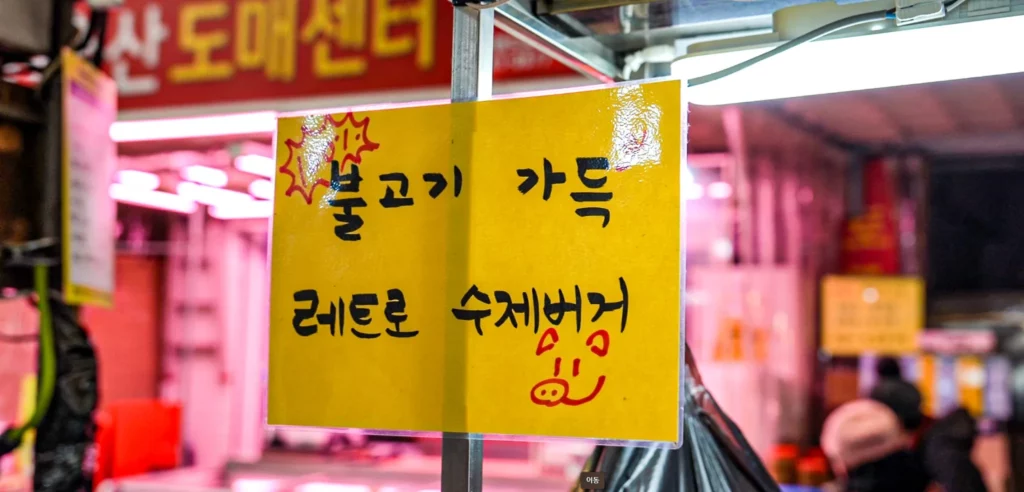 산 도매센터
불고기 가득
레트로 수제버거
이동